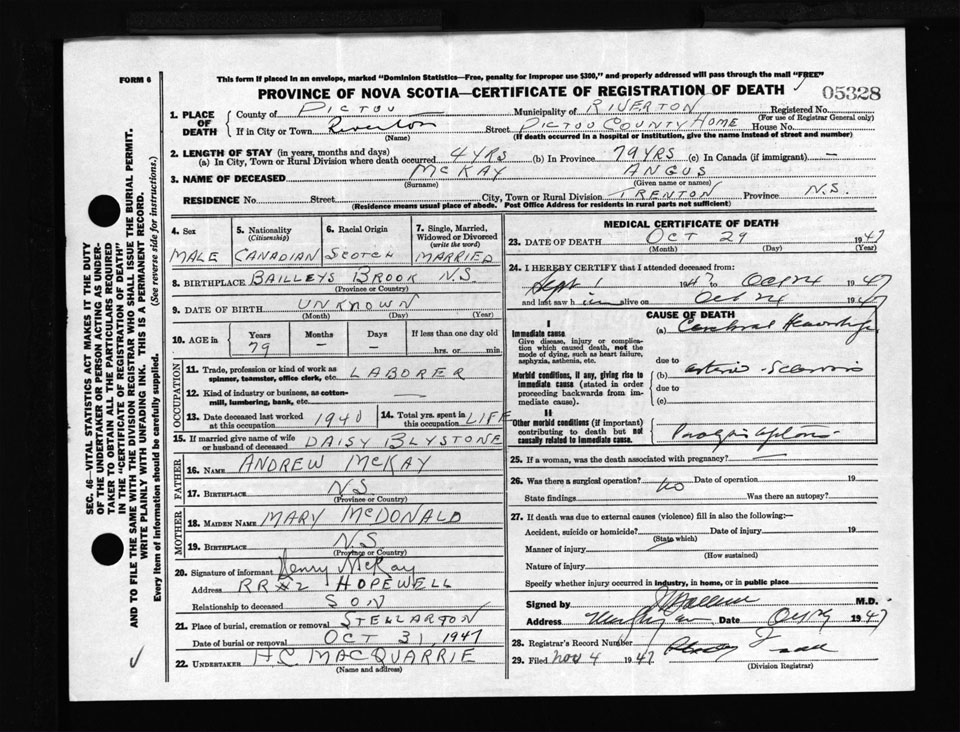 FORM 6
This form if placed in an envelope, marked "Dominion Statistics—Free, penalty for improper use $300," and properly addressed will pass through the mail "FREE"
PROVINCE OF NOVA SCOTIA—CERTIFICATE OF REGISTRATION OF DEATH
05328
1. PLACE OF DEATH
County of PICTOU Municipality of RIVERTON Registered No.
(For use of Registrar General only)
If in City or Town Riverton Street PICTOU COUNTY HOME House No.
(Name) (If death occurred in a hospital or institution, give the name instead of street and number)
2. LENGTH OF STAY (in years, months and days)
(a) In City, Town or Rural Division where death occurred 4 YRS (b) In Province 79 YRS (c) In Canada (if immigrant) —
3. NAME OF DECEASED MCKAY ANGUS
(Surname) (Given name or names)
RESIDENCE No. Street City, Town or Rural Division TRENTON Province N.S.
(Residence means usual place of abode. Post Office Address for residents in rural parts not sufficient)
4. Sex MALE
5. Nationality (Citizenship) CANADIAN
6. Racial Origin SCOTCH
7. Single, Married, Widowed or Divorced (write the word) MARRIED
8. BIRTHPLACE BAILLEYS BROOK N.S.
(Province or Country)
9. DATE OF BIRTH UNKNOWN
(Month) (Day) (Year)
10. AGE in Years Months Days If less than one day old
79 — — hrs. or min.
OCCUPATION
11. Trade, profession or kind of work as spinner, teamster, office clerk, etc. LABORER
12. Kind of industry or business, as cotton-mill, lumbering, bank, etc. —
13. Date deceased last worked at this occupation 1940
14. Total yrs. spent in this occupation LIFE
15. If married give name of wife or husband of deceased DAISY BLYSTONE
FATHER
16. NAME ANDREW MCKAY
17. BIRTHPLACE N.S.
(Province or Country)
MOTHER
18. MAIDEN NAME MARY MCDONALD
19. BIRTHPLACE N.S.
(Province or Country)
20. Signature of informant Henry McKay
Address RR#2 HOPEWELL
Relationship to deceased SON
21. Place of burial, cremation or removal STELLARTON
Date of burial or removal OCT 31 1947
22. UNDERTAKER H.C. MACQUARRIE
(Name and address)
MEDICAL CERTIFICATE OF DEATH
23. DATE OF DEATH OCT 29 1947
(Month) (Day) (Year)
24. I HEREBY CERTIFY that I attended deceased from:
Sept 1 1947 to Oct 24 1947
and last saw him alive on Oct 24 1947
CAUSE OF DEATH
I
Immediate cause
Give disease, injury or complication which caused death, not the mode of dying, such as heart failure, asphyxia, asthenia, etc.
(a) Cerebral Hemorrhage
due to
Morbid conditions, if any, giving rise to immediate cause (stated in order proceeding backwards from immediate cause).
(b) arterio-sclerosis
due to
(c)
II
Other morbid conditions (if important) contributing to death but not causally related to immediate cause.
25. If a woman, was the death associated with pregnancy? —
26. Was there a surgical operation? no Date of operation 19
State findings Was there an autopsy?
27. If death was due to external causes (violence) fill in also the following:—
Accident, suicide or homicide? Date of injury 19
(State which)
Manner of injury
(How sustained)
Nature of injury
Specify whether injury occurred in industry, in home, or in public place
Signed by M.D.
Address Date 1947
28. Registrar's Record Number
29. Filed Nov 4 1947
(Division Registrar)
SEC. 46—VITAL STATISTICS ACT MAKES IT THE DUTY
OF THE UNDERTAKER OR PERSON ACTING AS UNDER-
TAKER TO OBTAIN ALL THE PARTICULARS REQUIRED
IN THE "CERTIFICATE OF REGISTRATION OF DEATH"
AND TO FILE THE SAME WITH THE DIVISION REGISTRAR WHO SHALL ISSUE THE BURIAL PERMIT.
WRITE PLAINLY WITH UNFADING INK. THIS IS A PERMANENT RECORD.
Every item of information should be carefully supplied. (See reverse side for instructions.)